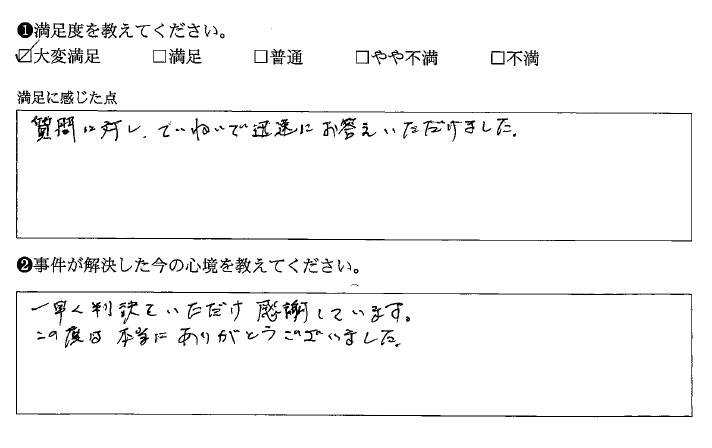 ❶満足度を教えてください。
☑大変満足 □満足 □普通 □やや不満 □不満
満足に感じた点
質問に対し、ていねいで迅速にお答えいただけました。
❷事件が解決した今の心境を教えてください。
一早く判決をいただけ感謝しています。
この度は本当にありがとうございました。